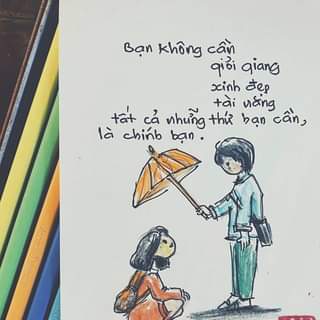 Bạn không cần
giỏi giang
xinh đẹp
tài năng
tất cả những thứ bạn cần,
là chính bạn.